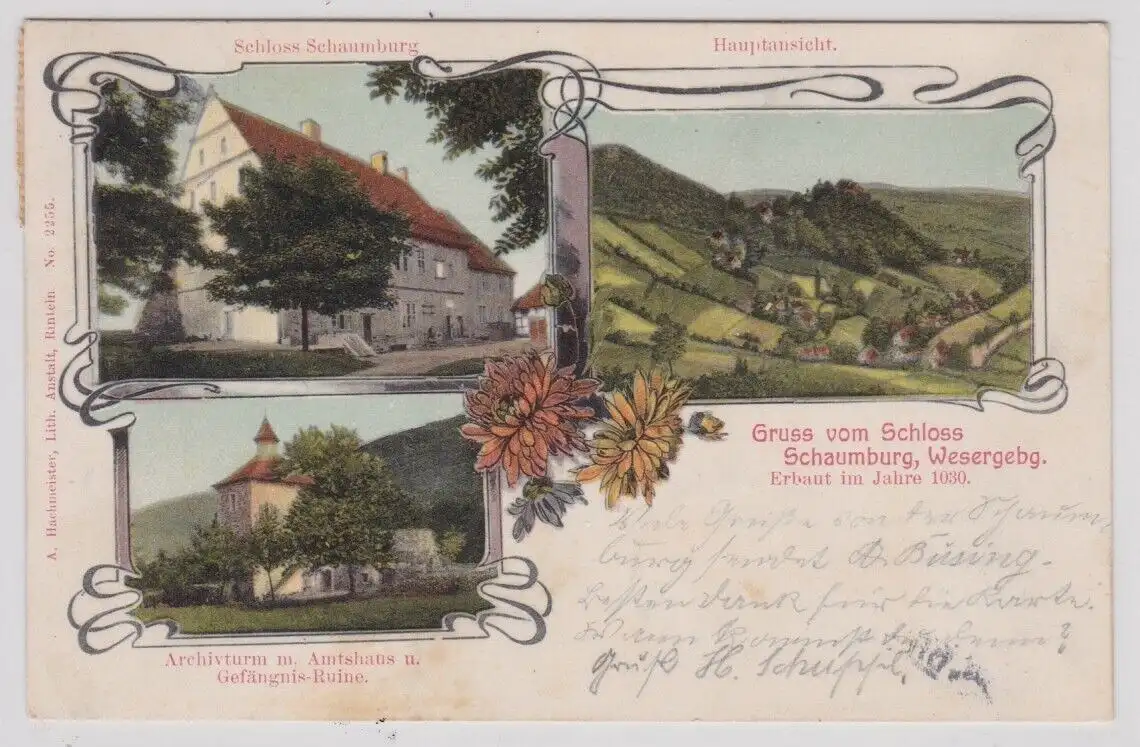 Schloss Schaumburg
Hauptansicht.
A. Hachmeister, Lith. Anstalt, Rinteln No. 2255.
Gruss vom Schloss
Schaumburg, Wesergebg.
Erbaut im Jahre 1030.
Viele Grüße von der Schaum-
burg sendet A. Büsing.
Besten Dank für die Karte.
Wann kommst du denn?
Gruß H.
Archivturm m. Amtshaus u.
Gefängnis-Ruine.